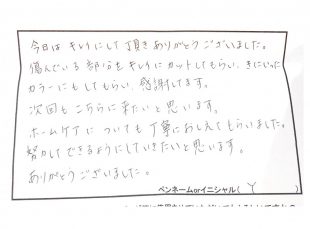 今日は キレイにして頂きありがとうございました。
傷んでいる部分を キレイにカットしてもらい、きにいった
カラーにもしてもらい、感謝してます。
次回も こちらに来たいと思います。
ホームケアについても丁寧におしえてもらいました。
努力してできるようにしていきたいと思います。
ありがとうございました。
ペンネームorイニシャル( Y )